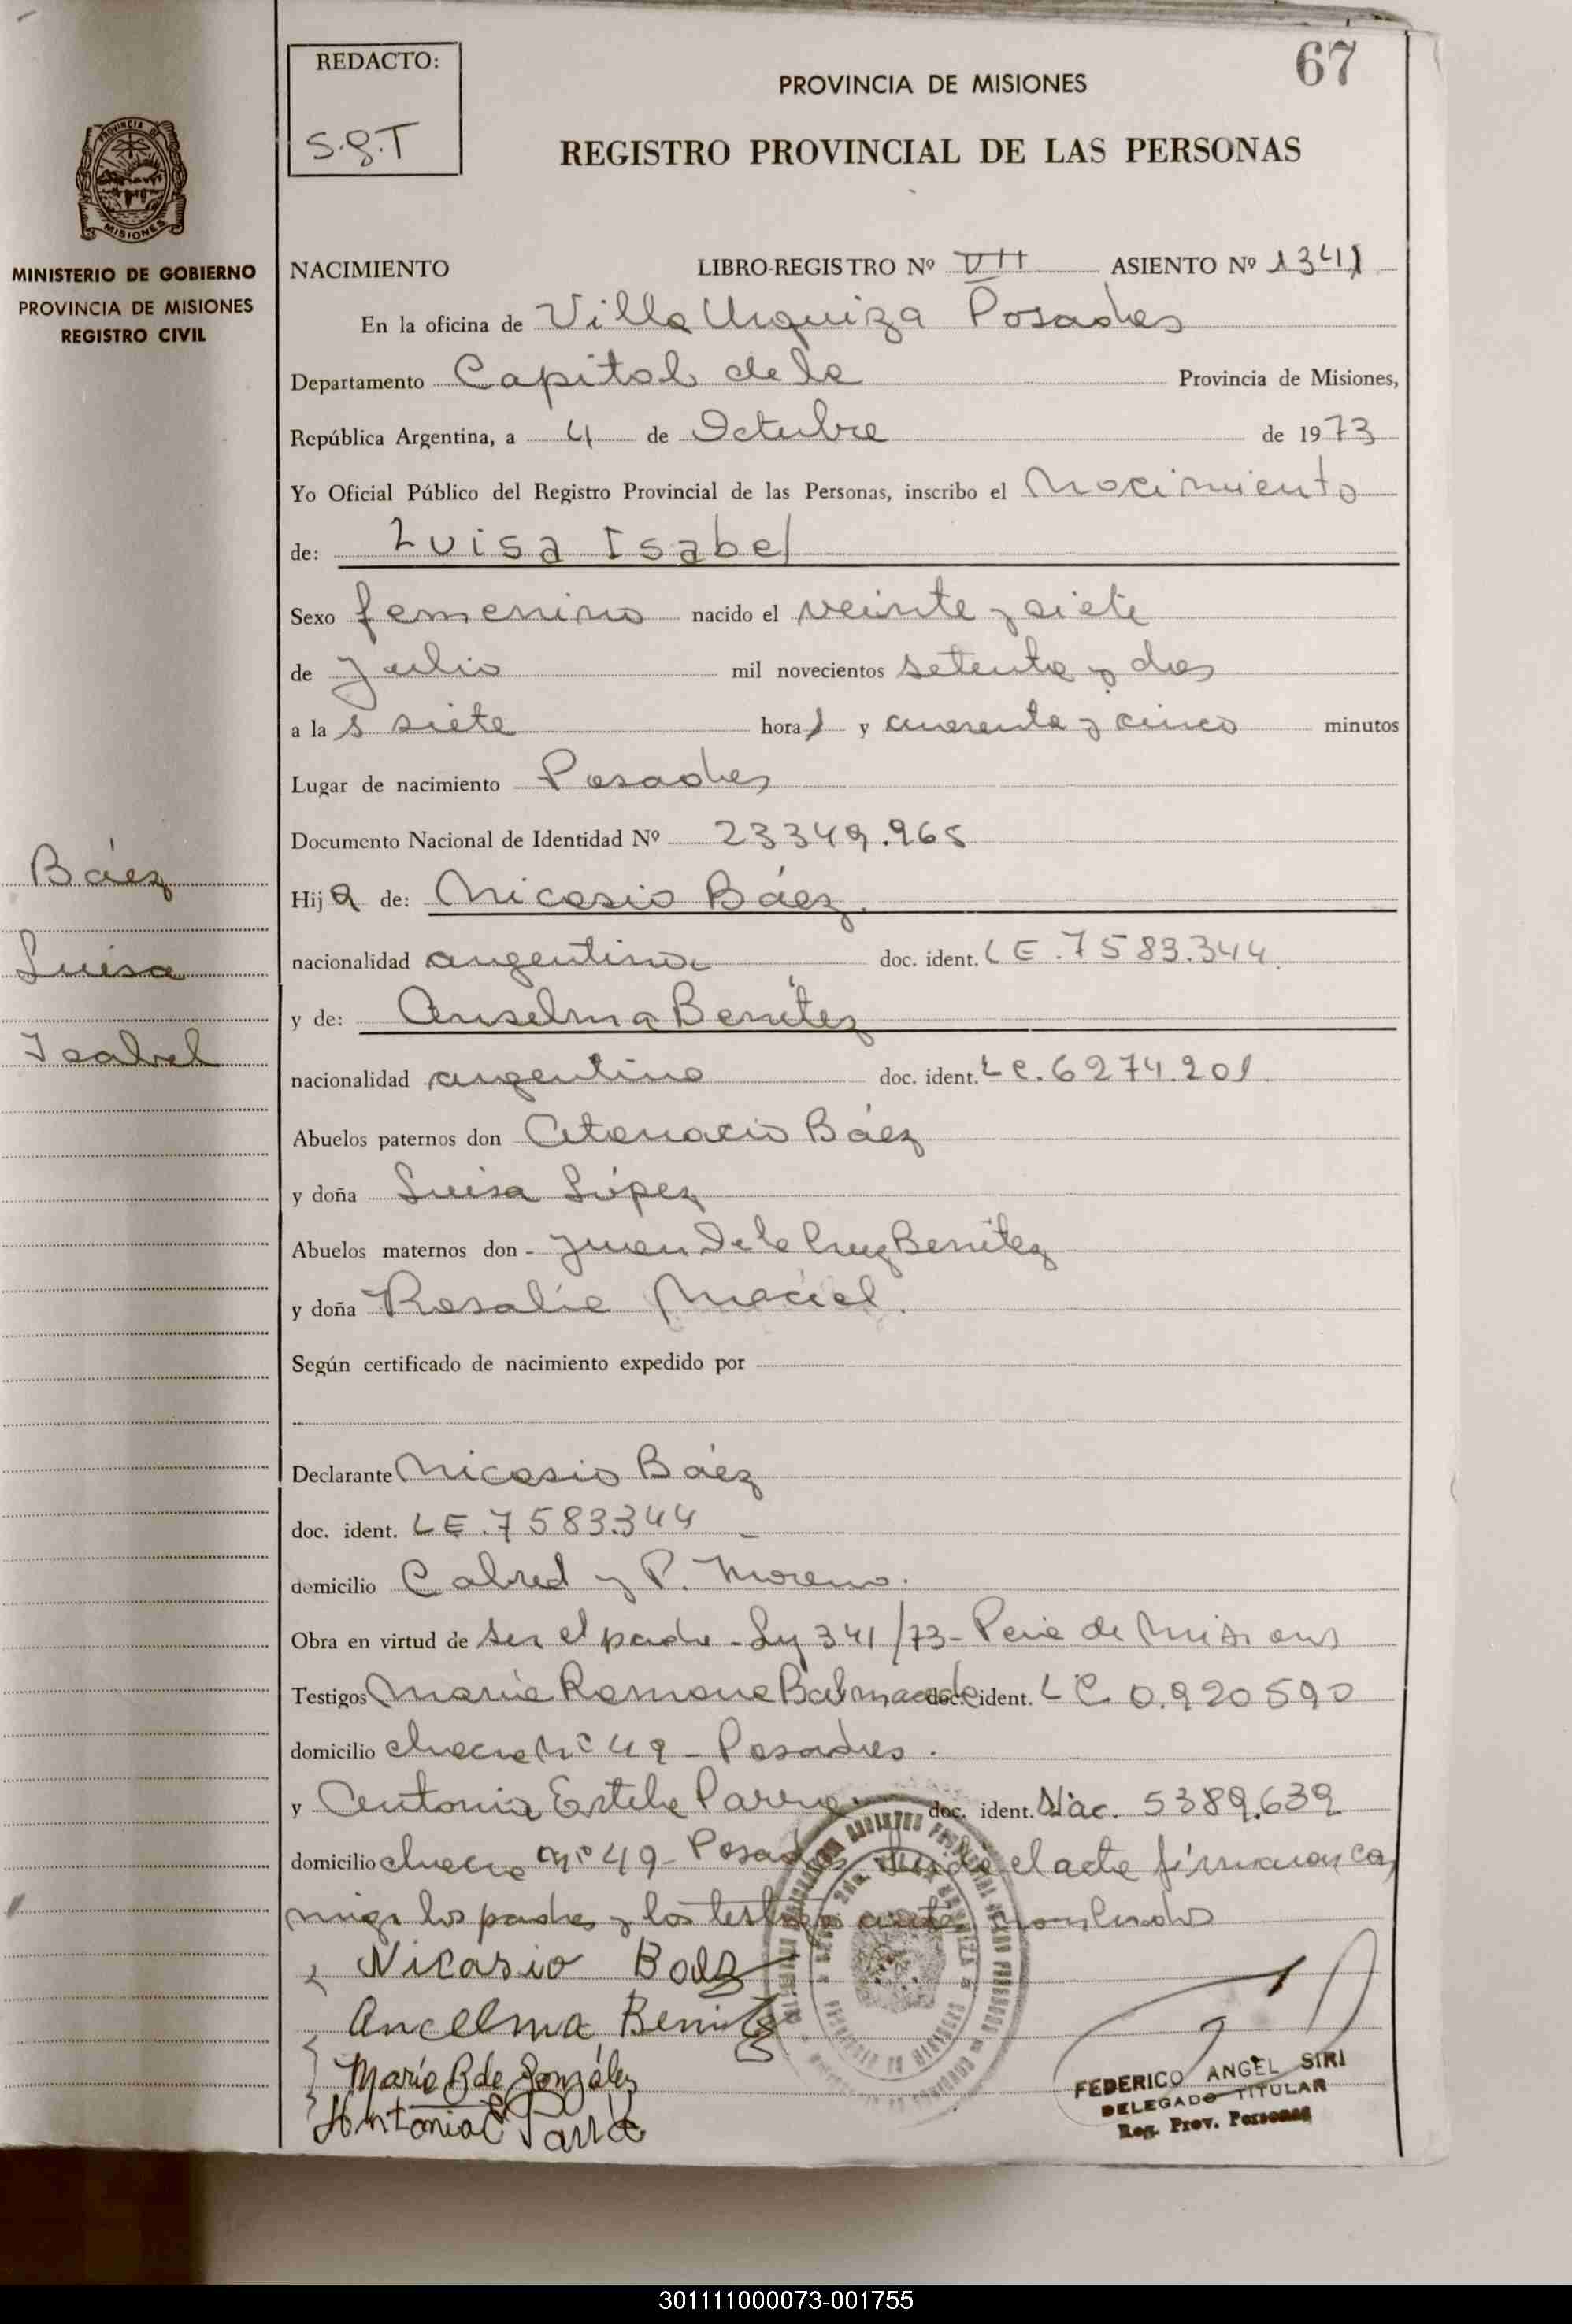 REDACTO:
S.g.T
67
PROVINCIA DE MISIONES
REGISTRO PROVINCIAL DE LAS PERSONAS
PROVINCIA DE
MISIONES
MINISTERIO DE GOBIERNO
PROVINCIA DE MISIONES
REGISTRO CIVIL
NACIMIENTO LIBRO-REGISTRO Nº VII ASIENTO Nº 1341
En la oficina de Villa Urquiza Posadas
Departamento Capital de la Provincia de Misiones,
República Argentina, a 4 de Octubre de 1973
Yo Oficial Público del Registro Provincial de las Personas, inscribo el Nacimiento
de: Luisa Isabel
Sexo femenino nacido el veinte y siete
de Julio mil novecientos setenta y dos
a las siete horas y cuarenta y cinco minutos
Lugar de nacimiento Posadas
Documento Nacional de Identidad Nº 23349.965
Báez
Luisa
Isabel
Hija de: Nicasio Báez.
nacionalidad argentino doc. ident. LE.7583.344
y de: Anselma Benítez
nacionalidad argentina doc. ident. LC.6274.201
Abuelos paternos don Atanacio Báez
y doña Luisa López
Abuelos maternos don - Juan De la Cruz Benítez
y doña Rosalía Maciel.
Según certificado de nacimiento expedido por
Declarante Nicasio Báez
doc. ident. LE.7583.344
domicilio Cabred y P. Moreno.
Obra en virtud de ser el padre - Ley 341/73 - Pcia de Misiones
Testigos María Ramona Balmaceda doc. ident. LC 0.920590
domicilio chacra Nº 49 - Posadas.
y Antonia Estela Parra doc. ident. Nac. 5389.639
domicilio chacra Nº 49 - Posadas el acta firmaron con
migo los padres y los testigos ante nombrados
Nicasio Baez
Ancelma Benitez
María B de González
Antonia E Parra
FEDERICO ANGEL SIRI
DELEGADO TITULAR
Reg. Prov. Personas
301111000073-001755